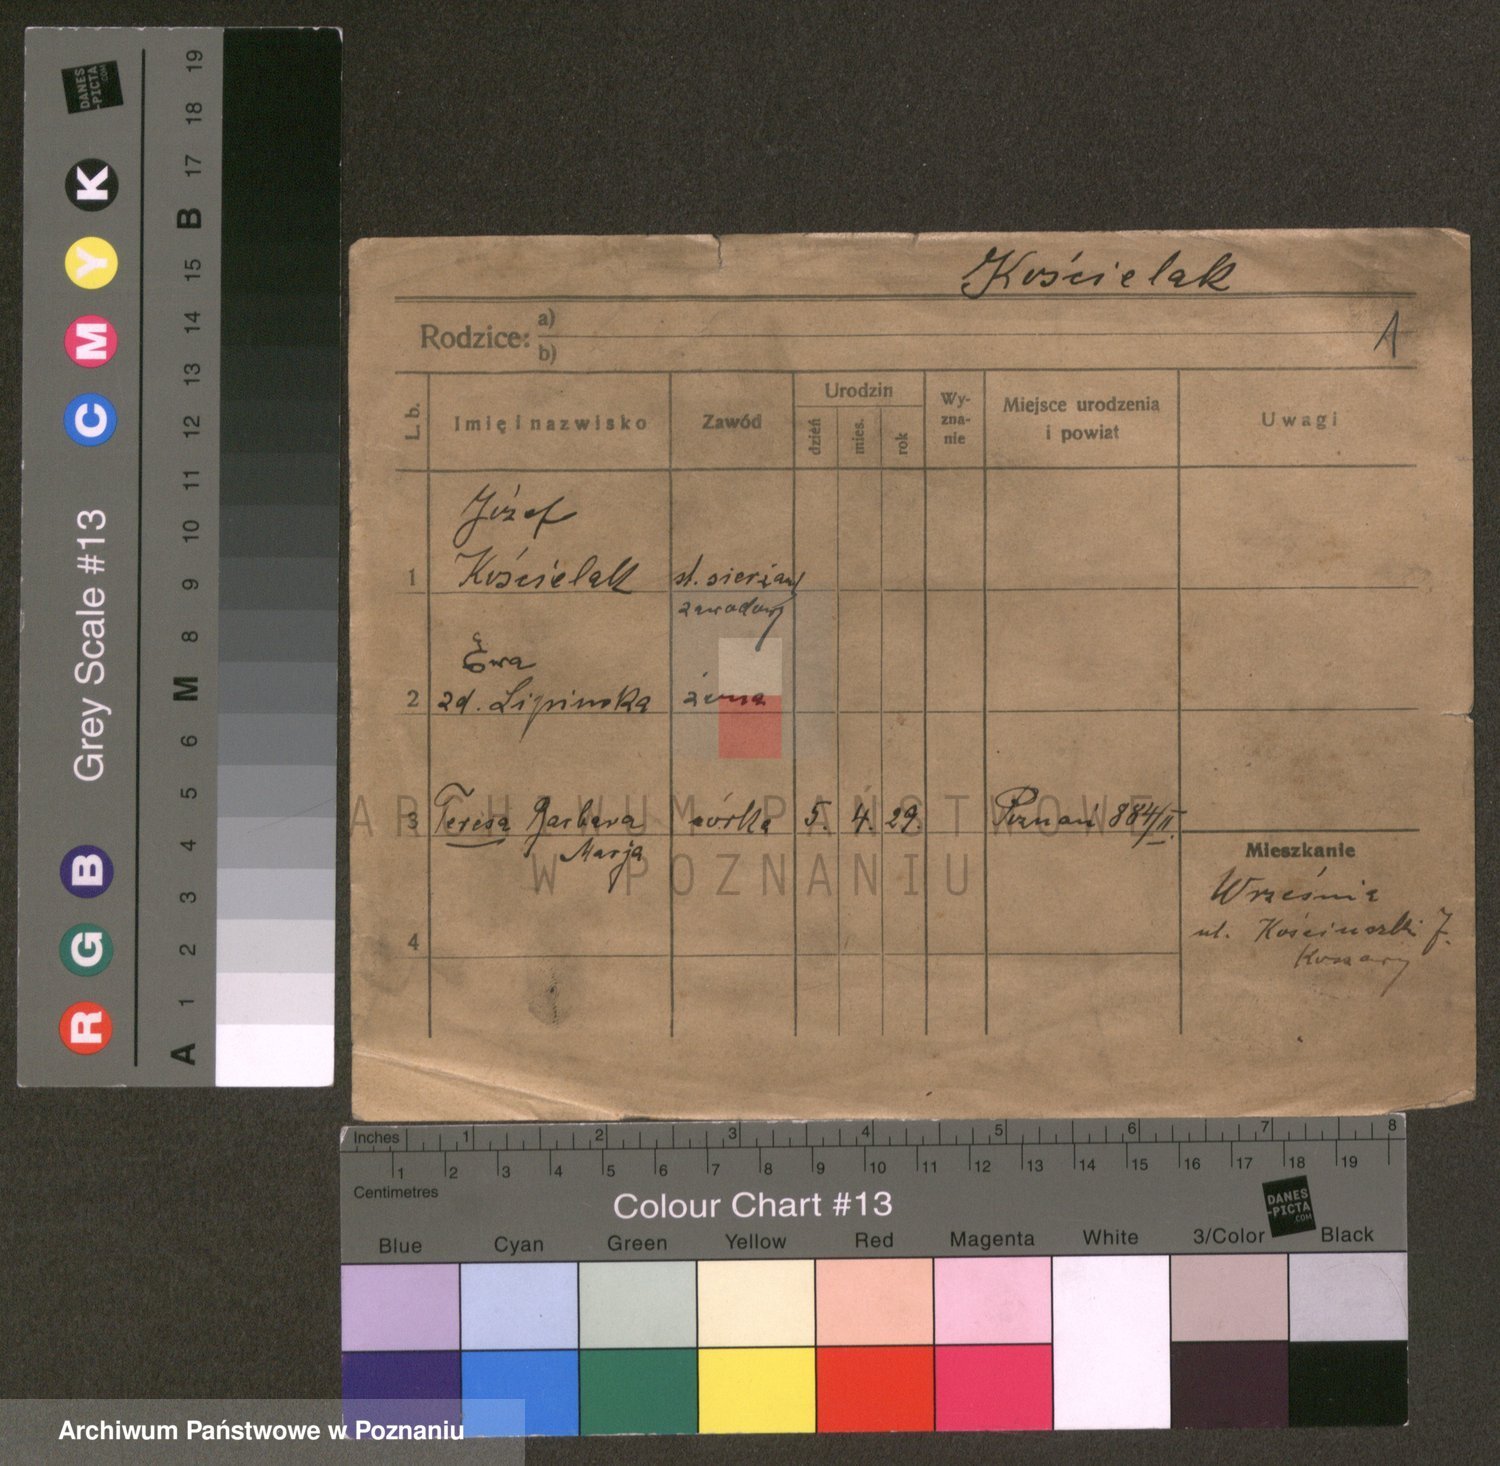 DANES
-PICTA
.COM
Grey Scale #13
R G B C M Y K
A 1 2 3 4 5 6 M 8 9 10 11 12 13 14 15 B 17 18 19
Kościelak
Rodzice: a)
b)
1
L. b.
Imię i nazwisko
Zawód
Urodzin
dzień
mies.
rok
Wy-
zna-
nie
Miejsce urodzenia
i powiat
Uwagi
Józef
1 Kościelak st. sierżant
zawodowy
Ewa
2 zd. Lipinska żona
3 Teresa Barbara córka 5. 4. 29. Poznań 884/II.
Marja
4
Mieszkanie
Września
ul. Kościuszki 7.
Koszary
ARCHIWUM PAŃSTWOWE
W POZNANIU
Inches 1 2 3 4 5 6 7 8
1 2 3 4 5 6 7 8 9 10 11 12 13 14 15 16 17 18 19
Centimetres
Colour Chart #13
DANES
-PICTA
.COM
Blue Cyan Green Yellow Red Magenta White 3/Color Black
Archiwum Państwowe w Poznaniu